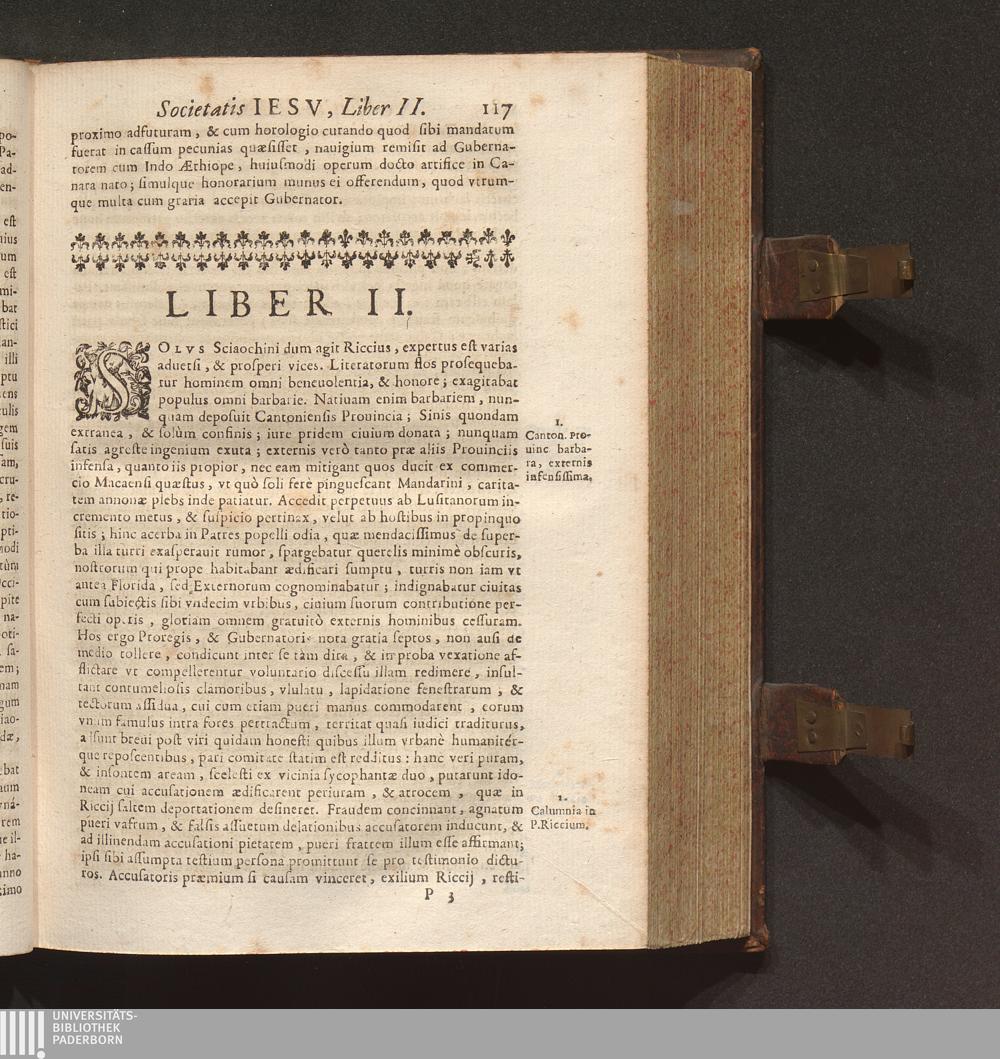 Societatis IESV, Liber II. 117
proximo adfuturam, & cum horologio curando quod sibi mandatum
fuerat in cassum pecunias quæsisset, nauigium remisit ad Guberna-
torem cum Indo Æthiope, huiusmodi operum docto artifice in Ca-
nara nato; simulque honorarium munus ei offerendum, quod vtrum-
que multa cum gratia accepit Gubernator.
LIBER II.
SOLVS Sciaochini dum agit Riccius, expertus est varias
aduersi, & prosperi vices. Literatorum flos prosequeba-
tur hominem omni beneuolentia, & honore; exagitabat
populus omni barbarie. Natiuam enim barbariem, nun-
quam deposuit Cantoniensis Prouincia; Sinis quondam
extranea, & solùm confinis; iure pridem ciuium donata; nunquam
satis agreste ingenium exuta; externis verò tanto præ aliis Prouinciis
infensa, quanto iis propior, nec eam mitigant quos ducit ex commer-
cio Macaensi quæstus, vt quò soli ferè pinguescant Mandarini, carita-
tem annonæ plebs inde patiatur. Accedit perpetuus ab Lusitanorum in-
cremento metus, & suspicio pertinax, velut ab hostibus in propinquo
sitis; hinc acerba in Patres popelli odia, quæ mendacissimus de super-
ba illa turri exasperauit rumor, spargebatur querelis minimè obscuris,
nostrorum qui prope habitabant ædificari sumptu, turris non iam vt
antea Florida, sed Externorum cognominabatur; indignabatur ciuitas
cum subiectis sibi vndecim vrbibus, ciuium suorum contributione per-
fecti operis, gloriam omnem gratuitò externis hominibus cessuram.
Hos ergo Proregis, & Gubernatoris nota gratia septos, non ausi de
medio tollere, condicunt inter se tàm dira, & improba vexatione af-
flictare vt compellerentur voluntario discessu illam redimere, insul-
tant contumeliosis clamoribus, vlulatu, lapidatione fenestrarum, &
tectorum assidua, cui cum etiam pueri manus commodarent, eorum
vnum famulus intra fores pertractum, territat quasi iudici traditurus,
adsunt breui post viri quidam honesti quibus illum vrbanè humanitér-
que reposcentibus, pari comitate statim est redditus: hanc veri puram,
& insontem aream, scelesti ex vicinia sycophantæ duo, putarunt ido-
neam cui accusationem ædificarent periuram, & atrocem, quæ in
Riccij saltem deportationem desineret. Fraudem concinnant, agnatum
pueri vafrum, & falsis assuetum delationibus accusatorem inducunt, &
ad illinendam accusationi pietatem, pueri fratrem illum esse affirmant;
ipsi sibi assumpta testium persona promittunt se pro testimonio dictu-
ros. Accusatoris præmium si causam vinceret, exilium Riccij, resti-
P 3
1.
Canton. Pro-
uinc barba-
ra, externis
infensissima.
2.
Calumnia in
P. Riccium.
po-
Pa-
ad-
en-
est
uius
um
est
mi-
bat
stici
an-
illi
ptu
ens
culis
gem
suis
am,
cru-
, re-
tio-
pti-
nodi
tùm
cci-
pite
na-
oti-
sa-
em;
nam
gum
iao-
dæ,
bat
num
vná-
rem
e il-
ha-
anno
simo
UNIVERSITÄTS-
BIBLIOTHEK
PADERBORN